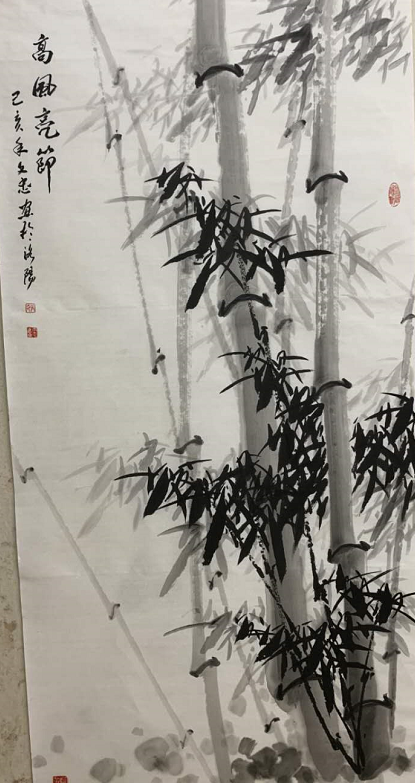 高风亮節
己亥年文忠画於洛陽